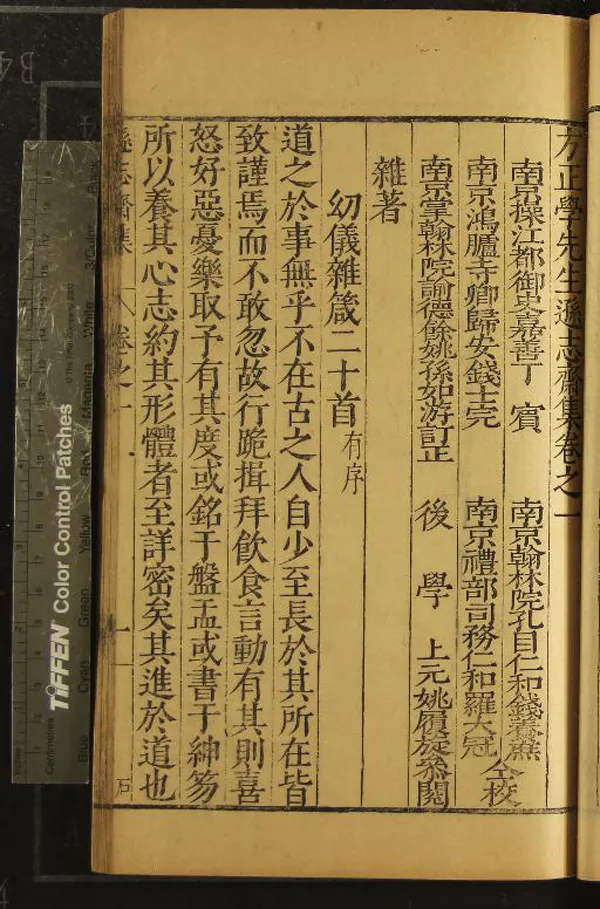 方正學先生遜志齋集卷之一
南京操江都御史嘉善丁 賓 南京翰林院孔目仁和錢養廉
南京鴻臚寺卿歸安錢士完 南京禮部司務仁和羅大冠 仝校
南京掌翰林院諭德餘姚孫如游訂正 後 學 上元姚履旋叅閱
雜著
幼儀雜箴二十首有序
道之於事無乎不在古之人自少至長於其所在皆
致謹焉而不敢忽故行跪揖拜飲食言動有其則喜
怒好惡憂樂取予有其度或銘于盤盂或書于紳笏
所以養其心志約其形體者至詳密矣其進於道也
遜志齋集 卷之一 一
TIFFEN Color Control Patches
Blue Cyan Green Yellow Red Magenta White
Centimetres